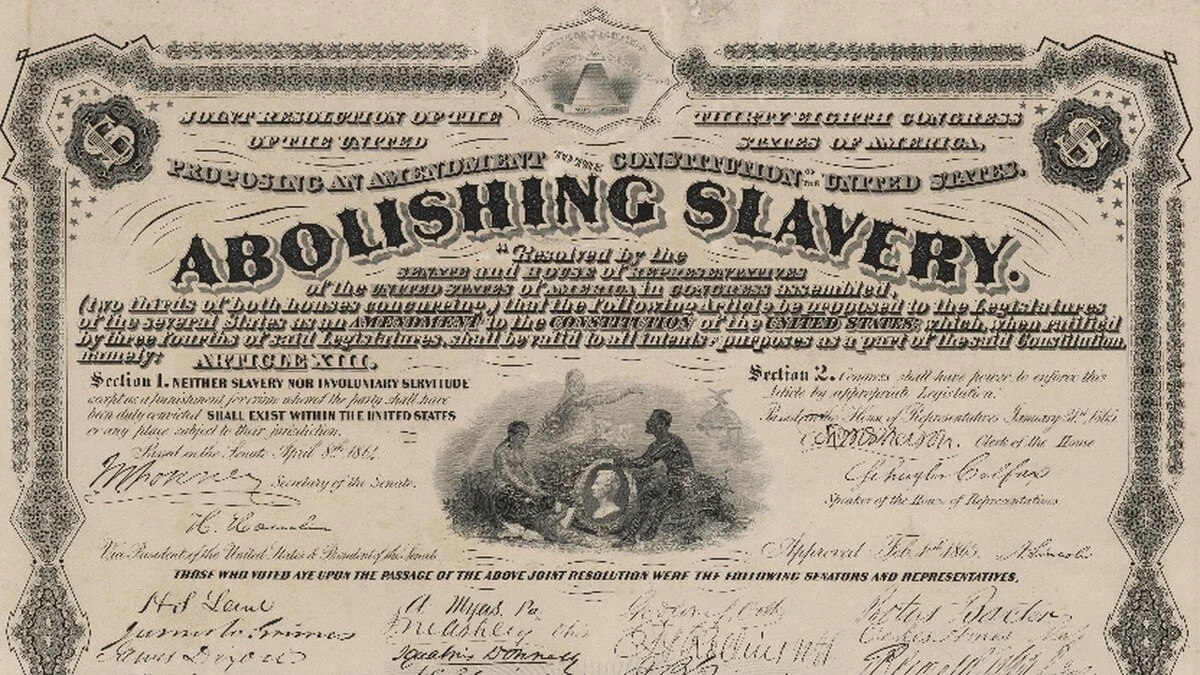 JOINT RESOLUTION OF THE THIRTY EIGHTH CONGRESS
OF THE UNITED STATES OF AMERICA,
PROPOSING AN AMENDMENT TO THE CONSTITUTION OF THE UNITED STATES.
ABOLISHING SLAVERY.
"Resolved by the
SENATE and HOUSE of REPRESENTATIVES
of the UNITED STATES of AMERICA in CONGRESS assembled,
(two thirds of both houses concurring,) that the following Article be proposed to the Legislatures
of the several States as an AMENDMENT to the CONSTITUTION of the UNITED STATES; which, when ratified
by three fourths of said Legislatures, shall be valid to all intents & purposes as a part of the said Constitution,
namely: ARTICLE XIII.
Section 1. NEITHER SLAVERY NOR INVOLUNTARY SERVITUDE
except as a punishment for crime whereof the party shall have
been duly convicted SHALL EXIST WITHIN THE UNITED STATES
or any place subject to their jurisdiction.
Passed in the Senate April 8th 1864.
Secretary of the Senate.
H. Hamlin
Vice President of the United States & President of the Senate
Section 2. Congress shall have power to enforce this
Article by appropriate Legislation.
Passed in the House of Representatives January 31st 1865
Clerk of the House
Schuyler Colfax
Speaker of the House of Representatives.
Approved Feb. 1st 1865. A. Lincoln
THOSE WHO VOTED AYE UPON THE PASSAGE OF THE ABOVE JOINT RESOLUTION WERE THE FOLLOWING SENATORS AND REPRESENTATIVES,
A Myers, Pa
Ashley Ohio
James Dixon
Ignatius Donnelly